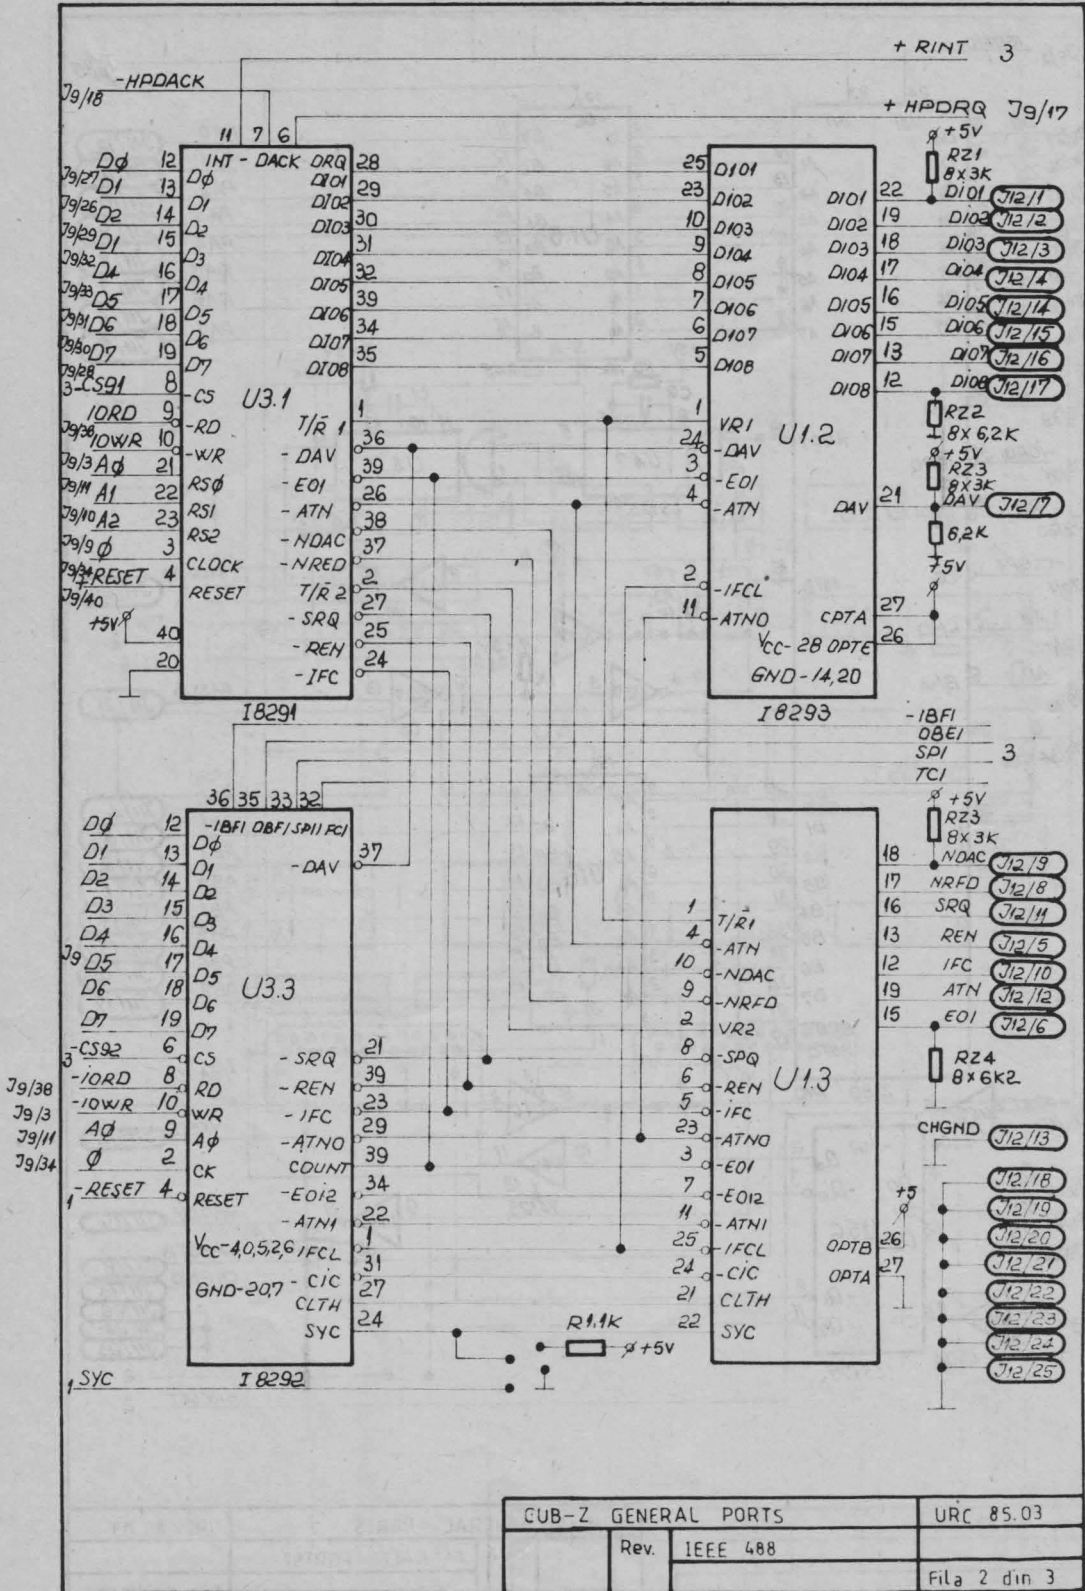 + RINT 3
-HPDACK
J9/18
+ HPDRQ J9/17
11 7 6
INT - DACK DRQ
DØ 12 DØ
J9/27
D1 13 D1
J9/26
D2 14 D2
J9/29
D1 15 D3
J9/32
D4 16 D4
J9/33
D5 17 D5
J9/31
D6 18 D6
J9/30
D7 19 D7
J9/28
3 -CS91 8 -CS
IORD 9 -RD
J9/38
IOWR 10 -WR
J9/3
AØ 21 RSØ
J9/11
A1 22 RS1
J9/10
A2 23 RS2
J9/9
Ø 3 CLOCK
J9/34
+RESET 4 RESET
J9/40
+5V
40
20
U3.1
DIO1 28
DIO2 29
DIO3 30
DIO4 31
DIO5 32
DIO6 39
DIO7 34
DIO8 35
T/R̄ 1 1
- DAV 36
- EOI 39
- ATN 26
- NDAC 38
- NRED 37
T/R̄ 2 2
- SRQ 27
- REN 25
- IFC 24
I8291
25 DIO1
23 DIO2
10 DIO3
9 DIO4
8 DIO5
7 DIO6
6 DIO7
5 DIO8
1 VR1
24 -DAV
3 -EOI
4 -ATN
2 -IFCL
11 -ATNO
U1.2
+5V
RZ1
8x3K
DIO1 22 DIO1 J12/1
DIO2 19 DIO2 J12/2
DIO3 18 DIO3 J12/3
DIO4 17 DIO4 J12/4
DIO5 16 DIO5 J12/14
DIO6 15 DIO6 J12/15
DIO7 13 DIO7 J12/16
DIO8 12 DIO8 J12/17
RZ2
8x6,2K
+5V
RZ3
8x3K
DAV 21 DAV J12/7
6,2K
+5V
CPTA 27
VCC-28 OPTE 26
GND-14,20
I8293
-IBFI
OBEI
SPI 3
TCI
36 35 33 32
-IBFI OBFI SPII FCI
DØ 12 DØ
D1 13 D1
D2 14 D2
D3 15 D3
D4 16 D4
J9
D5 17 D5
D6 18 D6
D7 19 D7
3 -CS92 6 CS
J9/38 -IORD 8 RD
J9/3 -IOWR 10 WR
J9/11 AØ 9 AØ
J9/34 Ø 2 CK
1 -RESET 4 RESET
U3.3
- DAV 37
- SRQ 21
- REN 39
- IFC 23
- ATNO 29
COUNT 39
-EOI2 34
- ATNI 22
VCC-4,0,5,2,6 IFCL 1
- CIC 31
GND-20,7
CLTH 27
SYC 24
I8292
1 SYC
R1.1K
+5V
+5V
RZ3
8x3K
1 T/R̄1
4 -ATN
10 -NDAC
9 -NRFD
2 VR2
8 -SPQ
6 -REN
5 -IFC
23 -ATNO
3 -EOI
7 -EOI2
11 -ATNI
25 -IFCL
24 -CIC
21 CLTH
22 SYC
U1.3
18 NDAC J12/9
17 NRFD J12/8
16 SRQ J12/11
13 REN J12/5
12 IFC J12/10
19 ATN J12/12
15 EOI J12/6
RZ4
8x6K2
CHGND J12/13
+5
OPTB 26
OPTA 27
J12/18
J12/19
J12/20
J12/21
J12/22
J12/23
J12/24
J12/25
CUB-Z GENERAL PORTS URC 85.03
Rev. IEEE 488
Fila 2 din 3